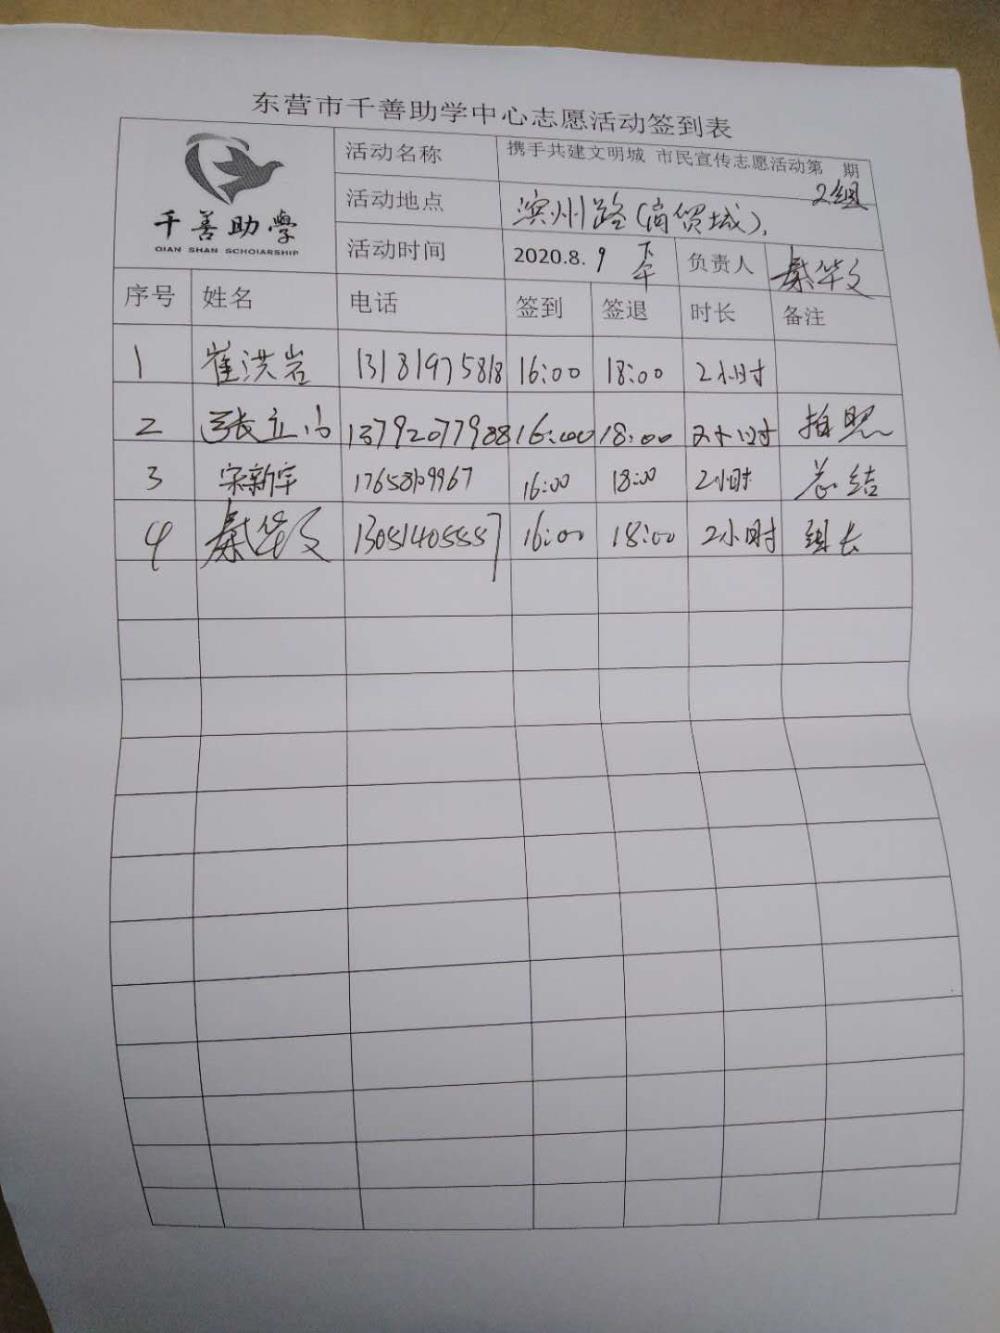 东营市千善助学中心志愿活动签到表
千善助學
QIAN SHAN SCHOIARSHIP
活动名称 携手共建文明城 市民宣传志愿活动第 期 2组
活动地点 滨州路(商贸城).
活动时间 2020.8.9 下午 负责人 秦华文
序号 姓名 电话 签到 签退 时长 备注
1 崔洪岩 13181975818 16:00 18:00 2小时
2 张立 13792077988 16:00 18:00 2小时 拍照
3 宋新宇 16:00 18:00 2小时 总结
4 秦华文 13051405557 16:00 18:00 2小时 组长